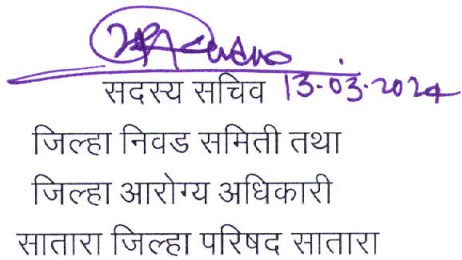 सदस्य सचिव 13.03.2024
जिल्हा निवड समिती तथा
जिल्हा आरोग्य अधिकारी
सातारा जिल्हा परिषद सातारा